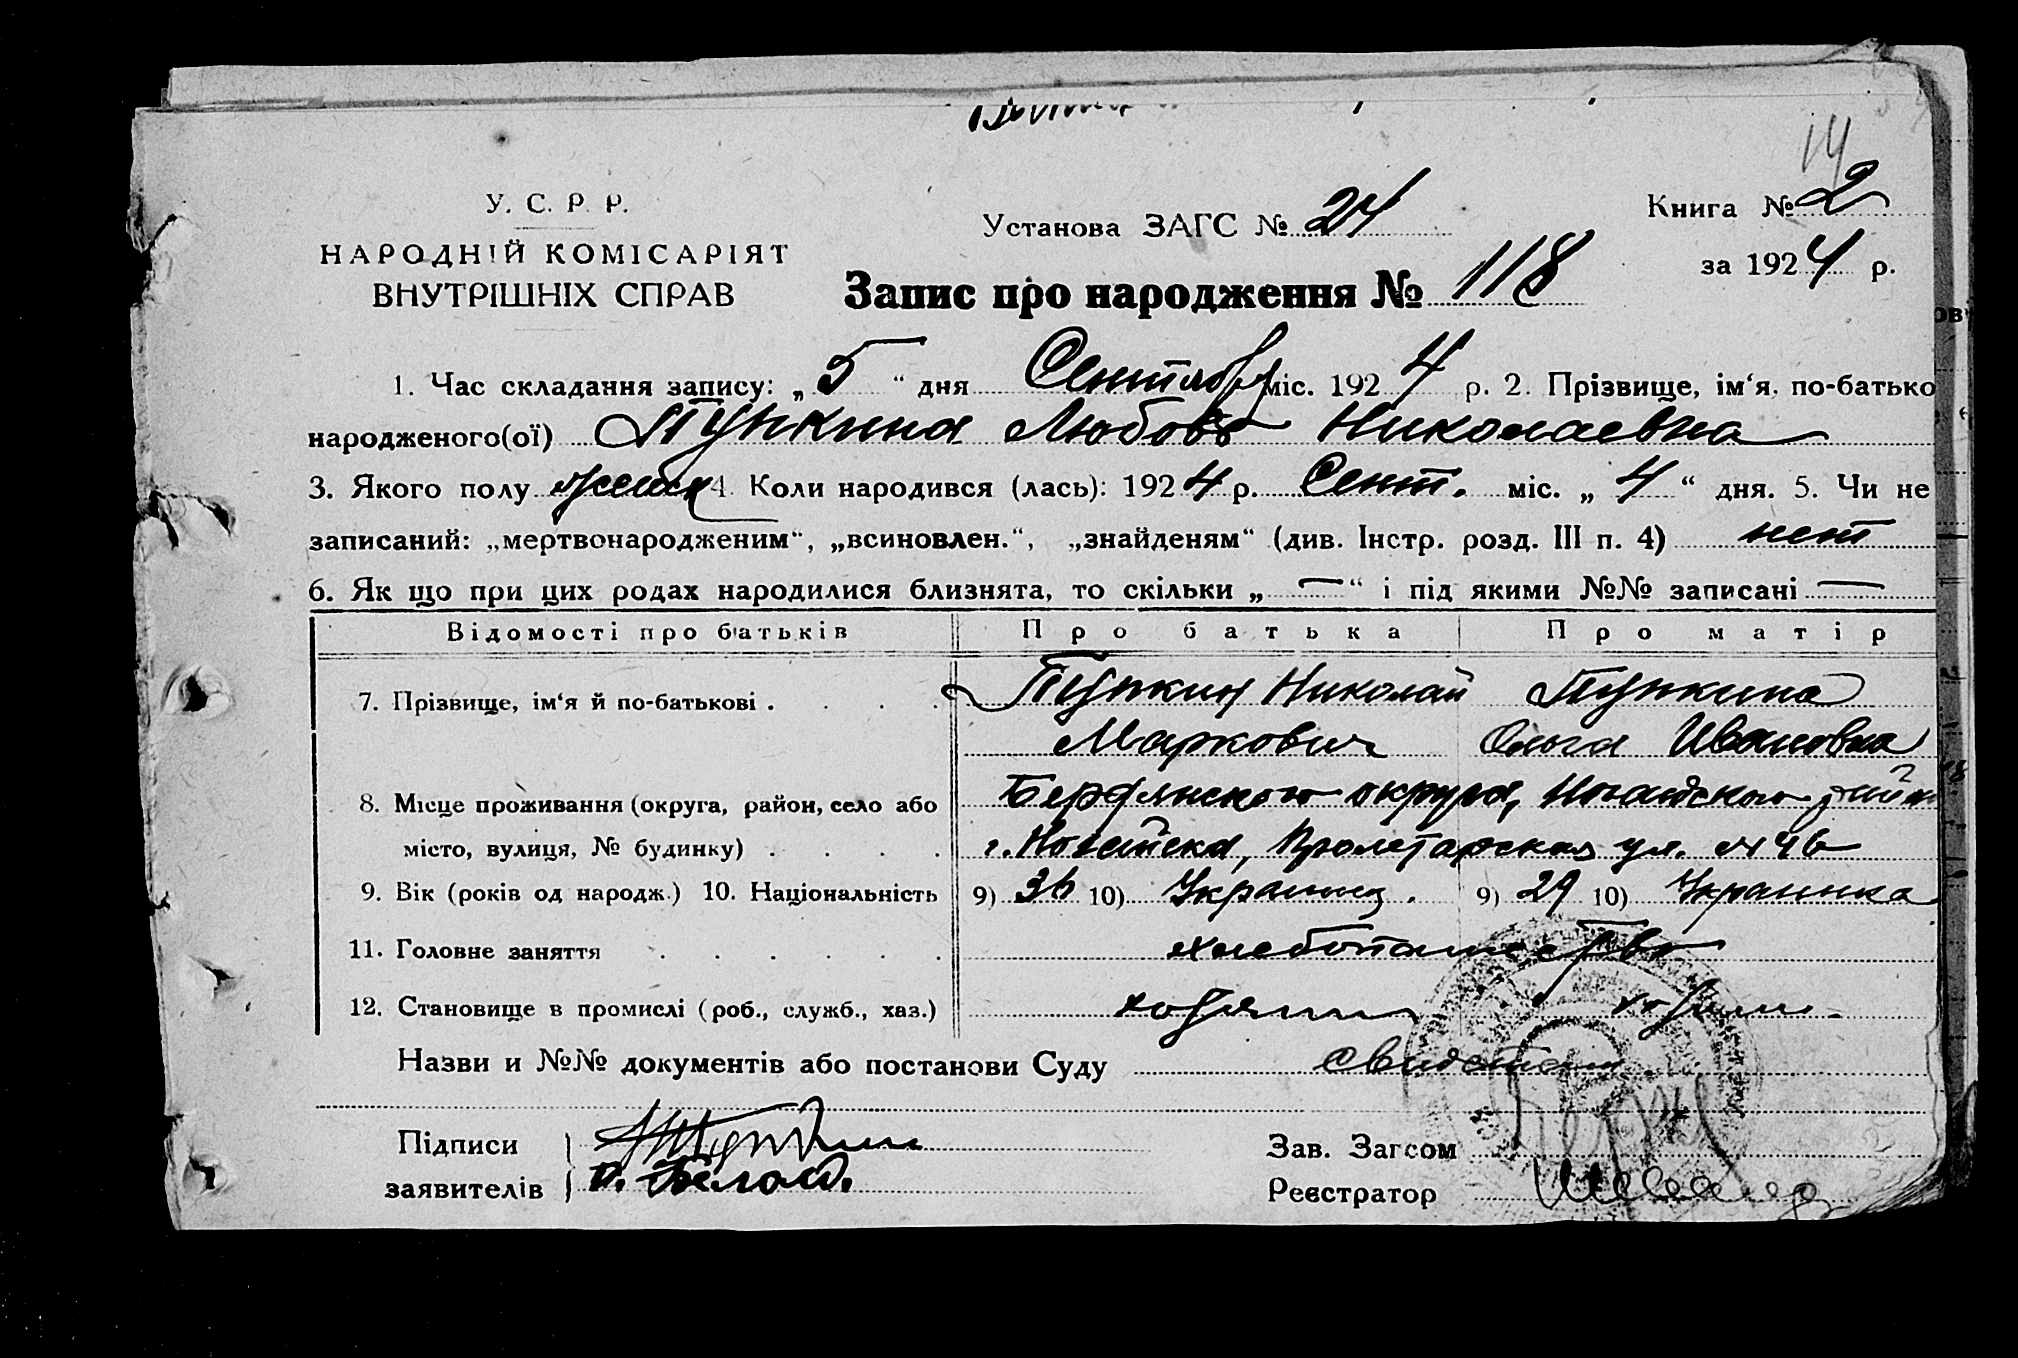 14
У. С. Р. Р.
НАРОДНІЙ КОМІСАРІЯТ
ВНУТРІШНІХ СПРАВ
Установа ЗАГС № 24
Книга № 2
за 1924 р.
Запис про народження № 118
1. Час складання запису: „5“ дня Сентябр міс. 1924 р. 2. Прізвище, ім‘я, по-батько
народженого(ої) Пупкина Любовь Николаевна
3. Якого полу женск 4. Коли народився (лась): 1924 р. Сент. міс. „4“ дня. 5. Чи не
записаний: „мертвонародженим“, „всиновлен.“, „знайденям“ (див. Інстр. розд. III п. 4) нет
6. Як що при цих родах народилися близнята, то скільки „—“ і під якими №№ записані —
Відомості про батьків Про батька Про матір
7. Прізвище, ім‘я й по-батькові . . . . Пупкин Николай Пупкина
Маркович Ольга Ивановна
8. Місце проживання (округа, район, село або Бердянского округа, Ногайского
місто, вулиця, № будинку) . . . . г. Ногайска, Пролетарская ул. № 46
9. Вік (років од народж.) 10. Національність 9) 36 10) Украинец . 9) 29 10) Украинка
11. Головне заняття . . . . . . хлебопашество
12. Становище в промислі (роб., служб., хаз.) хозяин хозяин.
Назви и №№ документів або постанови Суду
Підписи
заявителів
Зав. Загсом
Реєстратор